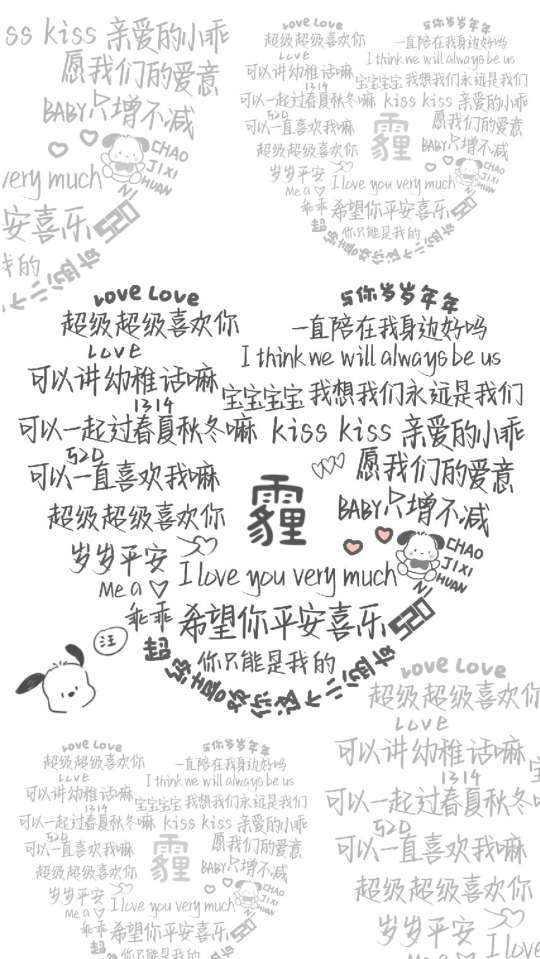 ss kiss 亲爱的小乖
愿我们的爱意
BABY只增不减
CHAO
JIXI
HUAN
NI
very much
安喜乐
520
我的
Love Love
与你岁岁年年
超级超级喜欢你
一直陪在我身边好吗
Love
I think we will always be us
可以讲幼稚话嘛
宝宝宝宝 我想我们永远是我们
1314
可以一起过春夏秋冬嘛 kiss kiss 亲爱的小乖
520
可以一直喜欢我嘛
愿我们的爱意
霾
BABY只增不减
超级超级喜欢你
CHAO
JIXI
HUAN
NI
岁岁平安
Me a
I love you very much
乖乖 希望你平安喜乐
520
你只能是我的
Love Love
与你岁岁年年
超级超级喜欢你
一直陪在我身边好吗
Love
I think we will always be us
可以讲幼稚话嘛
宝宝宝宝 我想我们永远是我们
1314
可以一起过春夏秋冬嘛 kiss kiss 亲爱的小乖
520
可以一直喜欢我嘛
愿我们的爱意
霾
BABY只增不减
超级超级喜欢你
CHAO
JIXI
HUAN
NI
岁岁平安
Me a
I love you very much
乖乖 希望你平安喜乐
520
你只能是我的
汪
Love Love
与你岁岁年年
超级超级喜欢你
一直陪在我身边好吗
Love
I think we will always be us
可以讲幼稚话嘛
宝宝宝宝 我想我们永远是我们
1314
可以一起过春夏秋冬嘛 kiss kiss 亲爱的小乖
520
可以一直喜欢我嘛
愿我们的爱意
霾
BABY只增不减
超级超级喜欢你
CHAO
JIXI
HUAN
NI
岁岁平安
Me a
I love you very much
乖乖 希望你平安喜乐
520
你只能是我的
Love Love
超级超级喜欢你
Love
可以讲幼稚话嘛
宝
1314
可以一起过春夏秋冬
520
可以一直喜欢我嘛
超级超级喜欢你
岁岁平安
Me a
I love